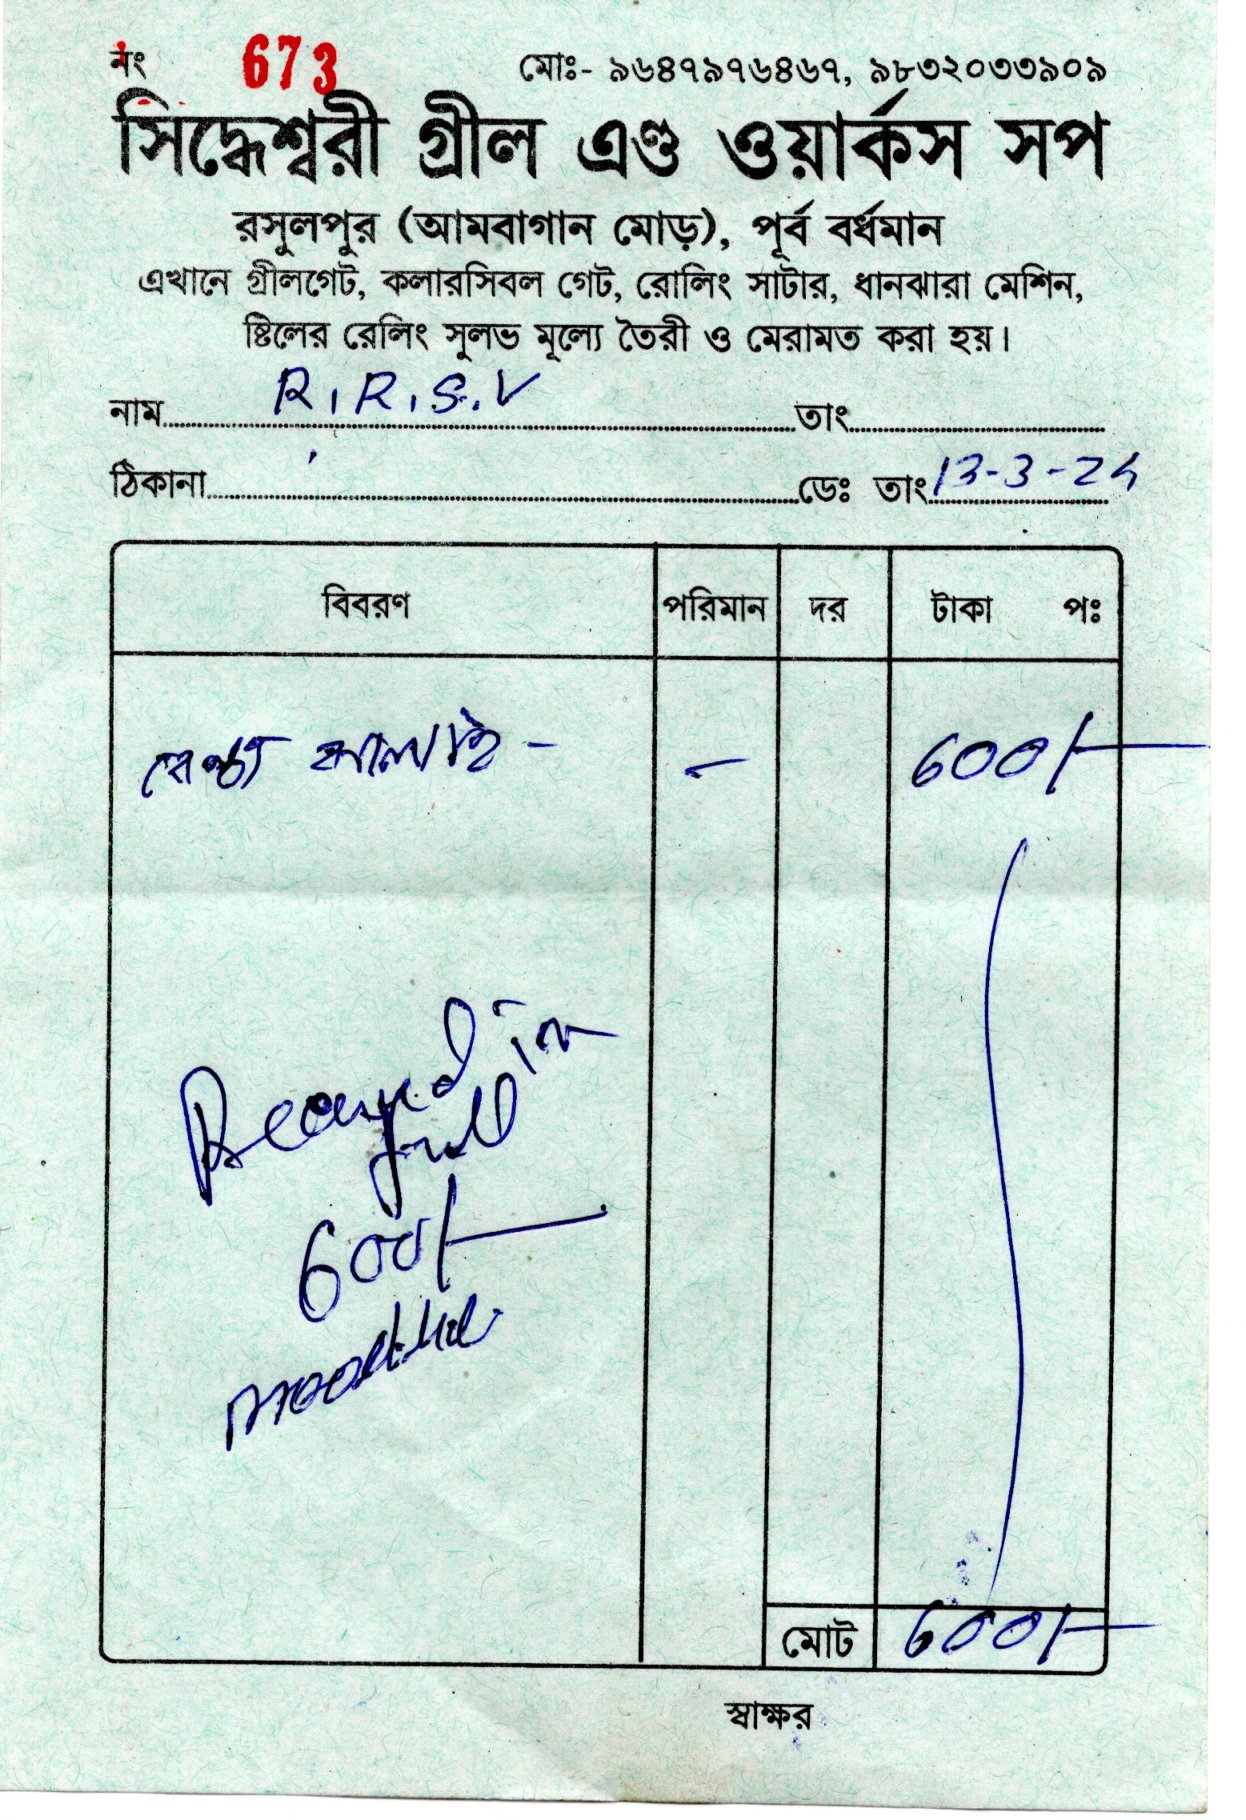 নং 673 মোঃ- ৯৬৪৭৯৭৬৪৬৭, ৯৮৩২০৩৩৯০৯
সিদ্ধেশ্বরী গ্রীল এণ্ড ওয়ার্কস সপ
রসুলপুর (আমবাগান মোড়), পূর্ব বর্ধমান
এখানে গ্রীলগেট, কলারসিবল গেট, রোলিং সাটার, ধানঝারা মেশিন,
ষ্টিলের রেলিং সুলভ মূল্যে তৈরী ও মেরামত করা হয়।
নাম R.R.S.V তাং
ঠিকানা ডেঃ তাং 13-3-24
বিবরণ পরিমান দর টাকা পঃ
ঝালাই - - 600/-
in
full
600/-
মোট 600/-
স্বাক্ষর